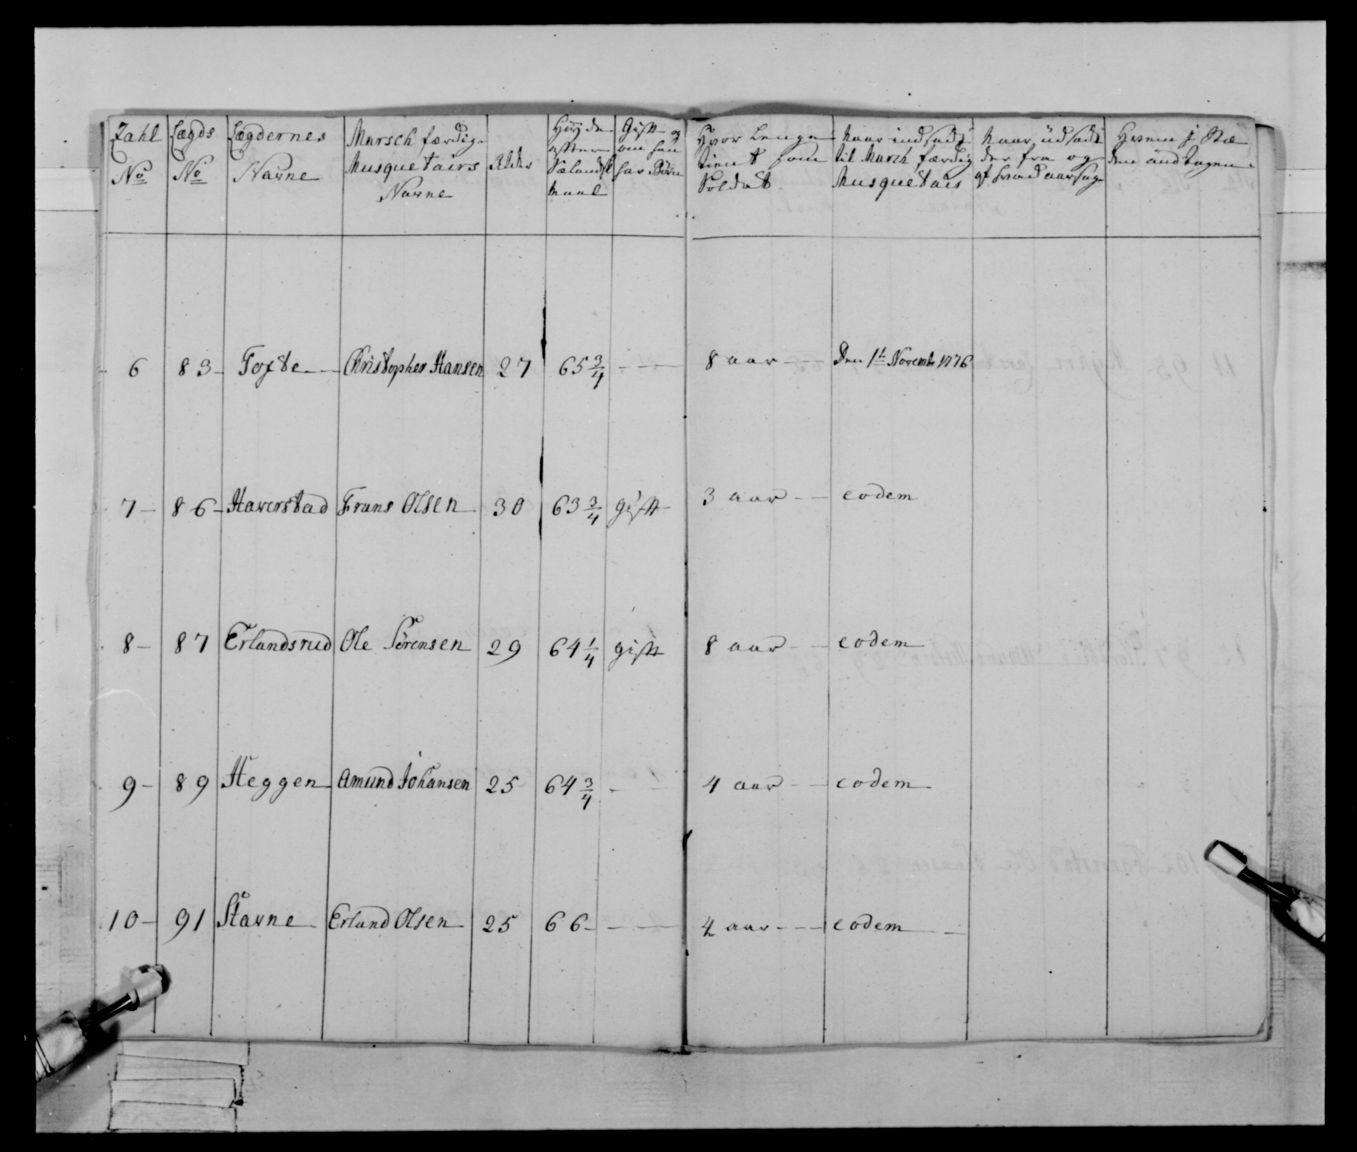 Zahl No | Lægds No | Lægdernes Navne | Marsch færdige Musquetairs Navne | Alder | Høÿde efter Sælandsk Maal | Gift og om hand har Børn | Hvor lenge tient som Soldat | Naar indsadt til March færdig Musquetair | Naar udsadt der fra og af hvad aarsag | Hvem i Stæden andtagen
6 | 83 | Tofte | Christopher Hansen | 27 | 65 3/4 | - | 8 aar | Den 1te Novembr 1776
7 | 86 | Haverstad | Frans Olsen | 30 | 63 3/4 | gift | 3 aar | eodem
8 | 87 | Erlandsrud | Ole Sørensen | 29 | 64 1/4 | gift | 8 aar | eodem
9 | 89 | Heggen | Amund Johansen | 25 | 64 3/4 | - | 4 aar | eodem
10 | 91 | Stavne | Erland Olsen | 25 | 66 | - | 4 aar | eodem